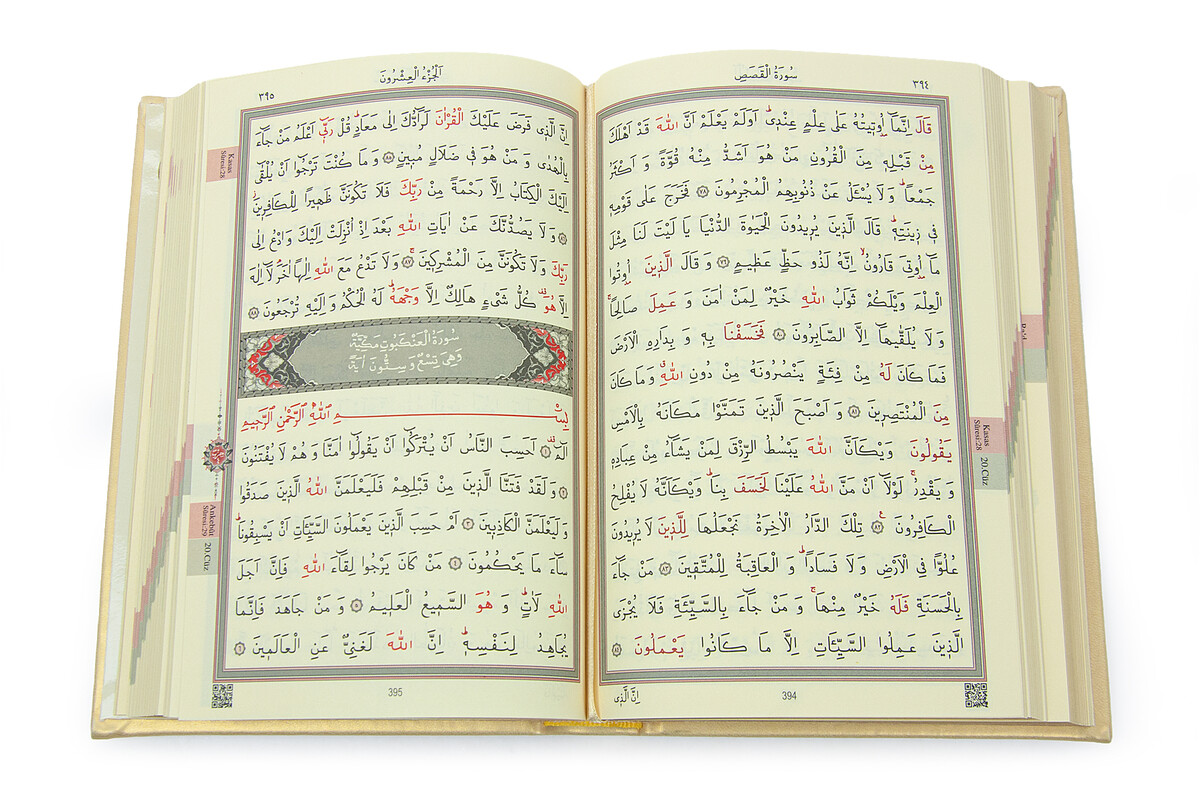 سُورَةُ الْقَصَصِ
٣٩٤
قَالَ اِنَّمَٓا اُو۫تٖيتُهُ عَلٰى عِلْمٍ عِنْدٖىؕ اَوَلَمْ يَعْلَمْ اَنَّ اللّٰهَ قَدْ اَهْلَكَ
مِنْ قَبْلِهٖ مِنَ الْقُرُونِ مَنْ هُوَ اَشَدُّ مِنْهُ قُوَّةً وَ اَكْثَرُ
جَمْعاًؕ وَ لَا يُسْئَلُ عَنْ ذُنُوبِهِمُ الْمُجْرِمُونَ ﴿٧٨﴾ فَخَرَجَ عَلٰى قَوْمِهٖ
فٖى زٖينَتِهٖؕ قَالَ الَّذٖينَ يُرٖيدُونَ الْحَيٰوةَ الدُّنْيَا يَا لَيْتَ لَنَا مِثْلَ
مَٓا اُو۫تِىَ قَارُونُۙ اِنَّهُ لَذُو حَظٍّ عَظٖيمٍ ﴿٧٩﴾ وَ قَالَ الَّذٖينَ اُو۫تُوا
الْعِلْمَ وَيْلَكُمْ ثَوَابُ اللّٰهِ خَيْرٌ لِمَنْ اٰمَنَ وَ عَمِلَ صَالِحاًۚ
وَ لَا يُلَقّٰيهَٓا اِلَّا الصَّابِرُونَ ﴿٨٠﴾ فَخَسَفْنَا بِهٖ وَ بِدَارِهِ الْاَرْضَ
فَمَا كَانَ لَهُ مِنْ فِئَةٍ يَنْصُرُونَهُ مِنْ دُونِ اللّٰهِۗ وَ مَا كَانَ
مِنَ الْمُنْتَصِرٖينَ ﴿٨١﴾ وَ اَصْبَحَ الَّذٖينَ تَمَنَّوْا مَكَانَهُ بِالْاَمْسِ
يَقُولُونَ وَيْكَاَنَّ اللّٰهَ يَبْسُطُ الرِّزْقَ لِمَنْ يَشَٓاءُ مِنْ عِبَادِهٖ
وَ يَقْدِرُۚ لَوْلَٓا اَنْ مَنَّ اللّٰهُ عَلَيْنَا لَخَسَفَ بِنَاؕ وَيْكَاَنَّهُ لَا يُفْلِحُ
الْكَافِرُونَ ﴿٨٢﴾ تِلْكَ الدَّارُ الْاٰخِرَةُ نَجْعَلُهَا لِلَّذٖينَ لَا يُرٖيدُونَ
عُلُوًّا فِى الْاَرْضِ وَ لَا فَسَاداًؕ وَ الْعَاقِبَةُ لِلْمُتَّقٖينَ ﴿٨٣﴾ مَنْ جَٓاءَ
بِالْحَسَنَةِ فَلَهُ خَيْرٌ مِنْهَاۚ وَ مَنْ جَٓاءَ بِالسَّيِّئَةِ فَلَا يُجْزَى
الَّذٖينَ عَمِلُوا السَّيِّـَٔاتِ اِلَّا مَا كَانُوا يَعْمَلُونَ ﴿٨٤﴾
اِنَّ الَّذٖى
394
Kasas
Sûresi:28
20.Cüz
اَلْجُزْءُ الْعِشْرُونَ
٣٩٥
اِنَّ الَّذٖى فَرَضَ عَلَيْكَ الْقُرْاٰنَ لَرَٓادُّكَ اِلٰى مَعَادٍؕ قُلْ رَبّٖٓى اَعْلَمُ مَنْ جَٓاءَ
بِالْهُدٰى وَ مَنْ هُوَ فٖى ضَلَالٍ مُبٖينٍ ﴿٨٥﴾ وَ مَا كُنْتَ تَرْجُٓوا اَنْ يُلْقٰٓى
اِلَيْكَ الْكِتَابُ اِلَّا رَحْمَةً مِنْ رَبِّكَ فَلَا تَكُونَنَّ ظَهٖيراً لِلْكَافِرٖينَؗ
﴿٨٦﴾ وَ لَا يَصُدُّنَّكَ عَنْ اٰيَاتِ اللّٰهِ بَعْدَ اِذْ اُنْزِلَتْ اِلَيْكَ وَ ادْعُ اِلٰى
رَبِّكَ وَ لَا تَكُونَنَّ مِنَ الْمُشْرِكٖينَۚ ﴿٨٧﴾ وَ لَا تَدْعُ مَعَ اللّٰهِ اِلٰهاً اٰخَرَۘ لَٓا اِلٰهَ
اِلَّا هُوَ كُلُّ شَىْءٍ هَالِكٌ اِلَّا وَجْهَهُؕ لَهُ الْحُكْمُ وَ اِلَيْهِ تُرْجَعُونَ ﴿٨٨﴾
سُورَةُ الْعَنْكَبُوتِ مَكِّيَّةٌ
وَهِىَ تِسْعٌ وَ سِتُّونَ اٰيَةً
بِسْمِ اللّٰهِ الرَّحْمٰنِ الرَّحٖيمِ
الٓمٓ ﴿١﴾ اَحَسِبَ النَّاسُ اَنْ يُتْرَكُٓوا اَنْ يَقُولُٓوا اٰمَنَّا وَ هُمْ لَا يُفْتَنُونَ
﴿٢﴾ وَ لَقَدْ فَتَنَّا الَّذٖينَ مِنْ قَبْلِهِمْ فَلَيَعْلَمَنَّ اللّٰهُ الَّذٖينَ صَدَقُوا
وَ لَيَعْلَمَنَّ الْكَاذِبٖينَ ﴿٣﴾ اَمْ حَسِبَ الَّذٖينَ يَعْمَلُونَ السَّيِّـَٔاتِ اَنْ يَسْبِقُونَاؕ
سَٓاءَ مَا يَحْكُمُونَ ﴿٤﴾ مَنْ كَانَ يَرْجُوا لِقَٓاءَ اللّٰهِ فَاِنَّ اَجَلَ
اللّٰهِ لَاٰتٍؕ وَ هُوَ السَّمٖيعُ الْعَلٖيمُ ﴿٥﴾ وَ مَنْ جَاهَدَ فَاِنَّمَا
يُجَاهِدُ لِنَفْسِهٖؕ اِنَّ اللّٰهَ لَغَنِىٌّ عَنِ الْعَالَمٖينَ ﴿٦﴾
395
Kasas
Sûresi:28
Ankebût
Sûresi:29
20.Cüz